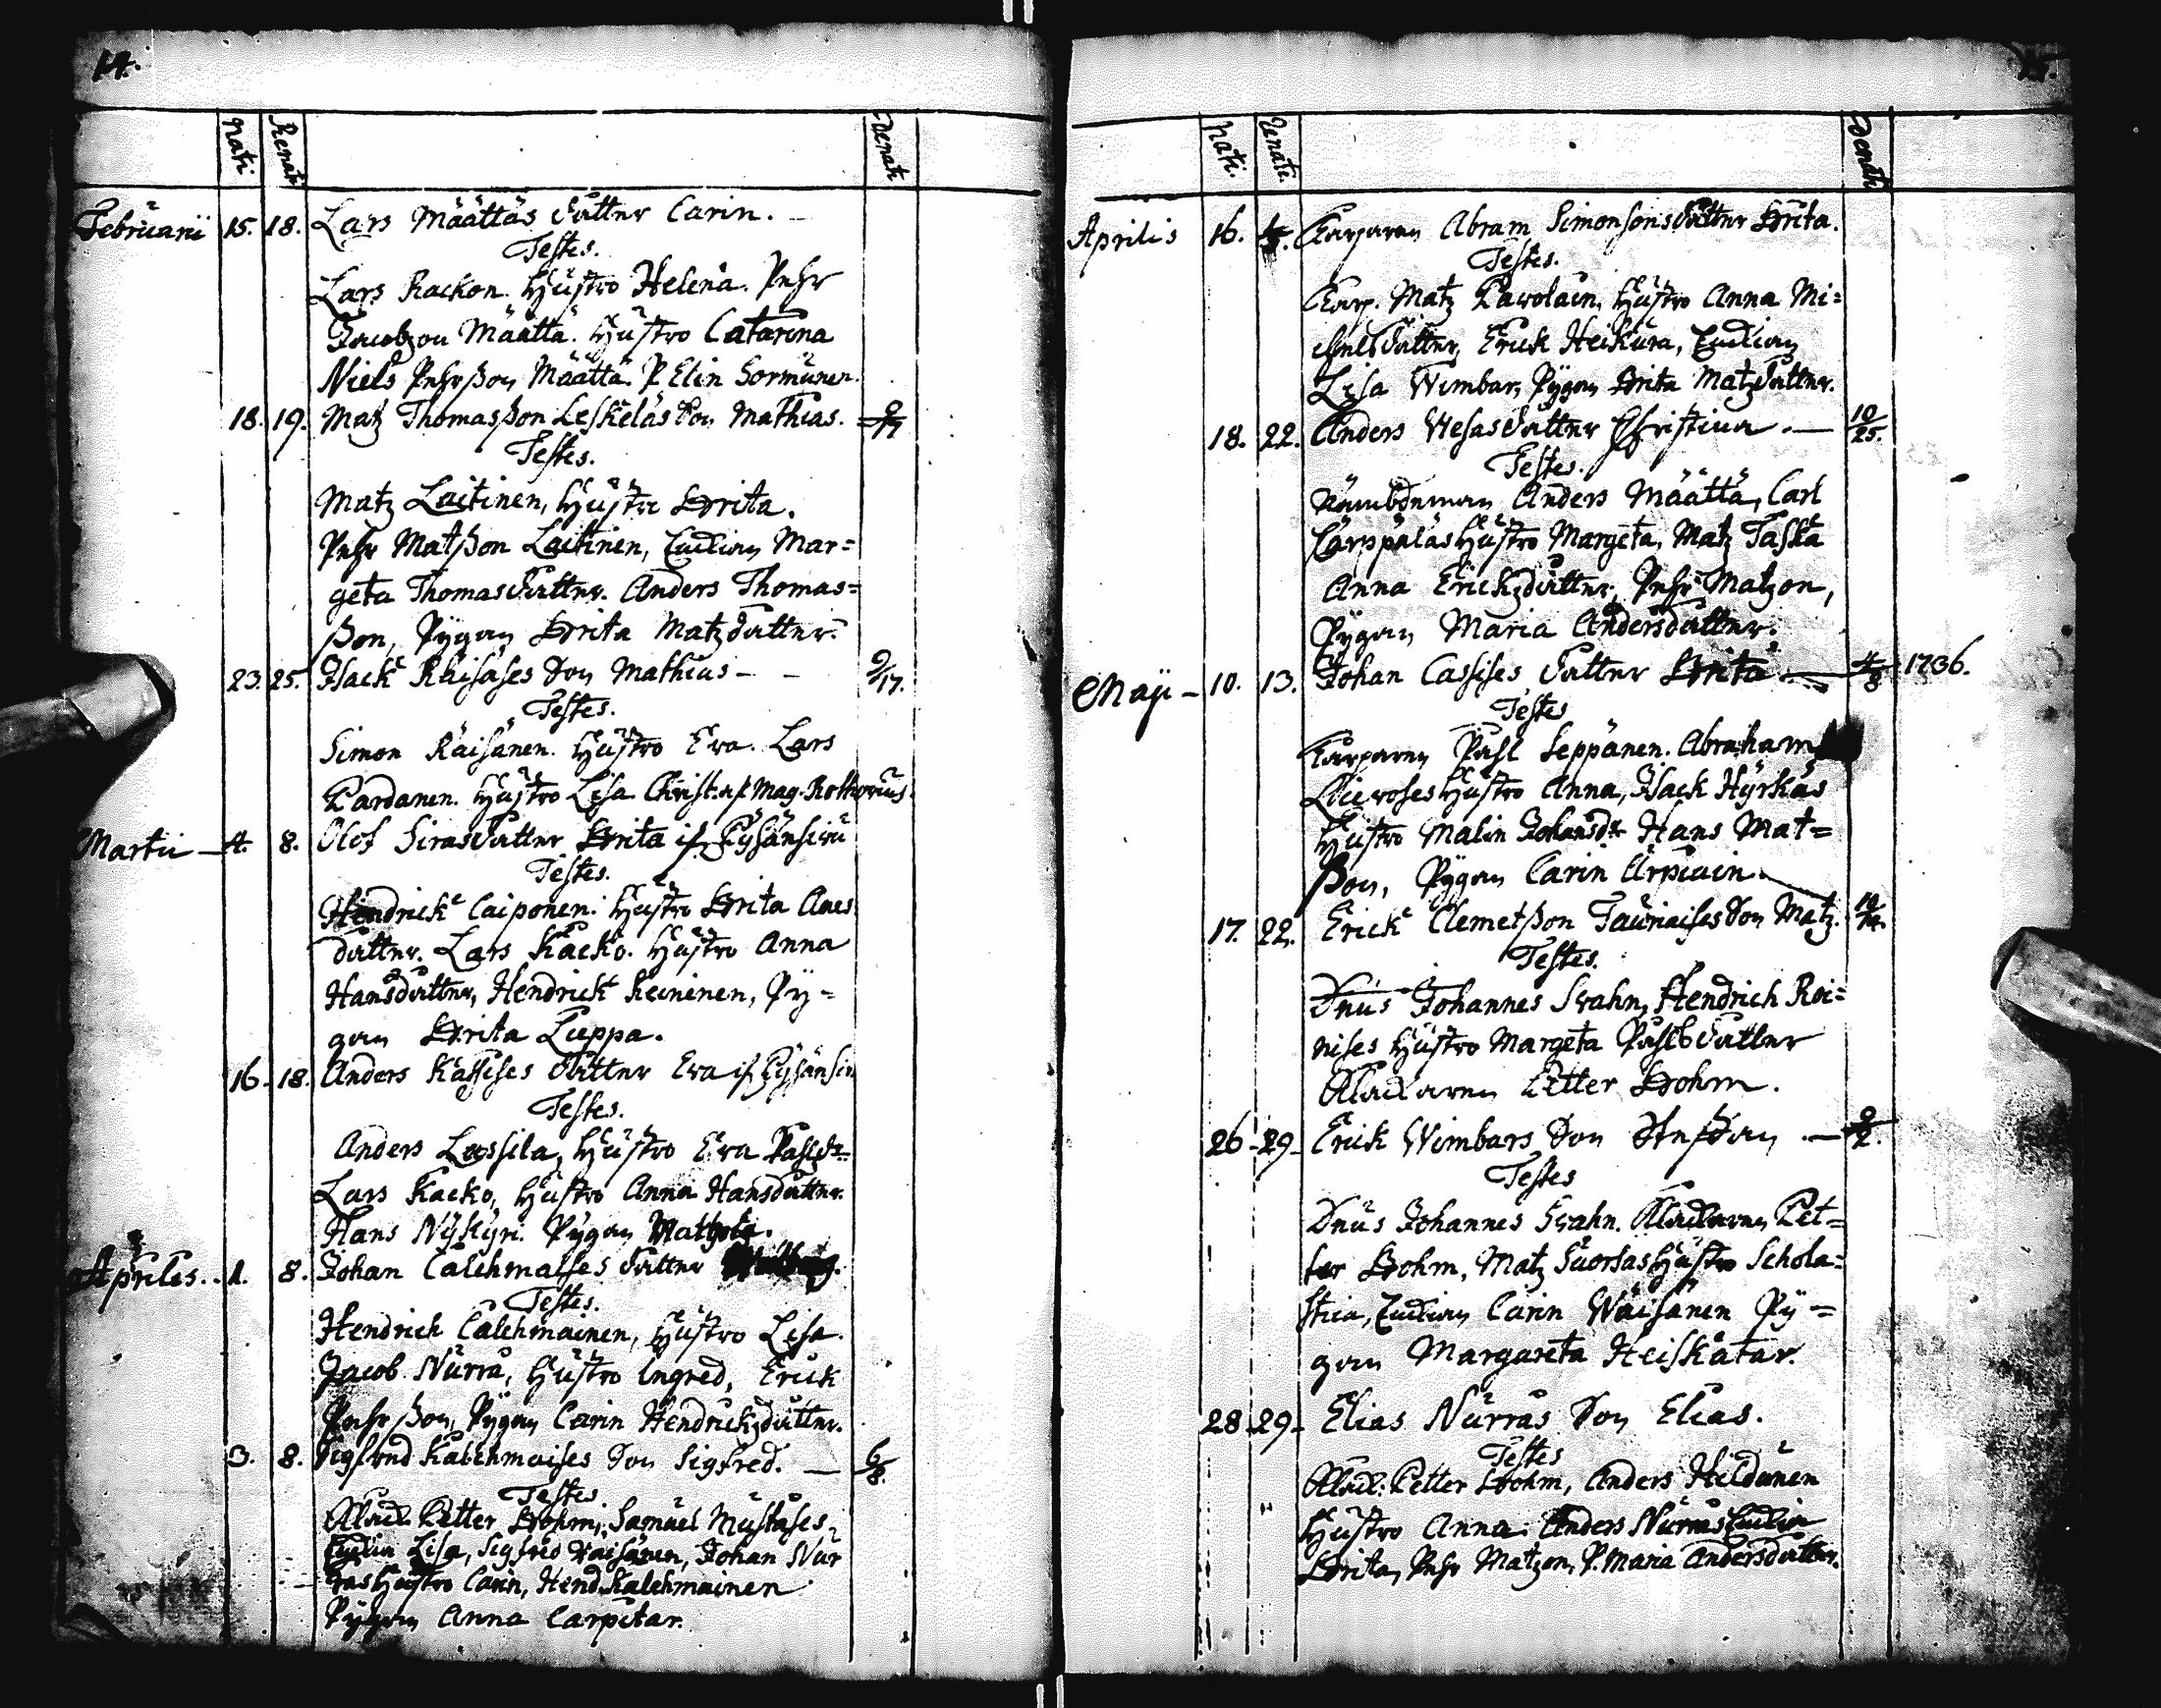 14.
Nati. Renati Denati
Februarii 15. 18. Lars Määttäs dotter Carin. –
Testes.
Lars Kackon. Hustro Helena. Pehr
Jacobzon Määttä. Hustro Catarina
Niels Pehrßon Määttä. P. Elin Sormunen.
18. 19. Matz Thomasßon Leskeläs Son Mathias. 9/17
Testes.
Matz Laitinen, Hustr Brita.
Pehr Matßon Laitinen, Enckian Mar=
geta Thomasdotter. Anders Thomas=
ßon, Pygan Brita Matzdotter.
23. 25. Isack Räisäses Son Mathias – – 9/17.
Testes.
Simon Räisänen. Hustro Eva. Lars
Pardanen. Hustro Lisa. Christ. af Mag. Rothovius.
Martii – 4. 8. Olof Sirasdotter Brita if. Pyhänsivu
Testes.
Hendrick Caiponen. Hustro Brita Claes
dotter. Lars Kacko. Hustro Anna
Hansdotter, Hendrick Keininen, Py=
gan Brita Puppa.
16. 18. Anders Kässises dotter Eva if. Pyhänsiv
Testes.
Anders Lassila, Hustro Eva Påhlsdr.
Lars Kacko, Hustro Anna Hansdotter.
Hans Nykyri. Pygan
Apriles. 1. 8. Johan Calehmasses dotter
Testes.
Hendrich Calehmainen, Hustro Lisa.
Jacob Nurra, Hustro Ingred, Erick
Pehrßon, Pygan Carin Hendrickzdotter.
3. 8. Sigfred Kalehmaises Son Sigfred. — 6/8.
Testes.
Petter Bohm, Samuel Mustases
Enckia Lisa, Sigfred Räisänen, Johan Nur
ras Hustro Carin, Hend. Kalehmainen
Pygan Anna Carpetar.
15.
Nati. Renati. Denati
Aprilis 16. Abram Simonsonsdotter Brita.
Testes.
Matz Pawolain, Hustro Anna Mi=
chelsdotter, Erick Heikura, Enckian
Lisa Wimbar, Pygan Brita Matzdotter.
18. 22. Anders Wesasdotter Christina. — 10/25.
Testes.
Nämbdeman Anders Määttä, Carl
Kärppäläs Hustro Margeta, Matz Taska
Anna Erickzdotter, Pehr Matzon,
Pygan Maria Andersdotter.
Maji – 10. 13. Johan Cassises dotter Brita. — 4/8 1736.
Testes
Påhl Seppänen. Abraham
Hustro Anna, Isack Hyrkäs
Hustro Malin Johansdr. Hans Mat=
ßon, Pygan Carin Urpiain.
17. 22. Erick Clemetßon Tauriaises Son Matz. 10/14.
Testes.
Dnus Johannes Svahn, Hendrich Roi=
nises Hustro Margeta Påhlsdotter
Petter Bohm.
26. 29. Erick Wimbars Son Staffan. — 9/2.
Testes
Dnus Johannes Svahn. Pet=
ter Bohm, Matz Suorsas Hustro Schola=
stica, Enckian Carin Wäisänen Py=
gan Margareta Heiskatar.
28. 29. Elias Nurras Son Elias.
Testes
Petter Bohm, Anders Heldunen
Hustro Anna. Anders Nurras Enckia
Brita, Pehr Matzon, P. Maria Andersdotter.